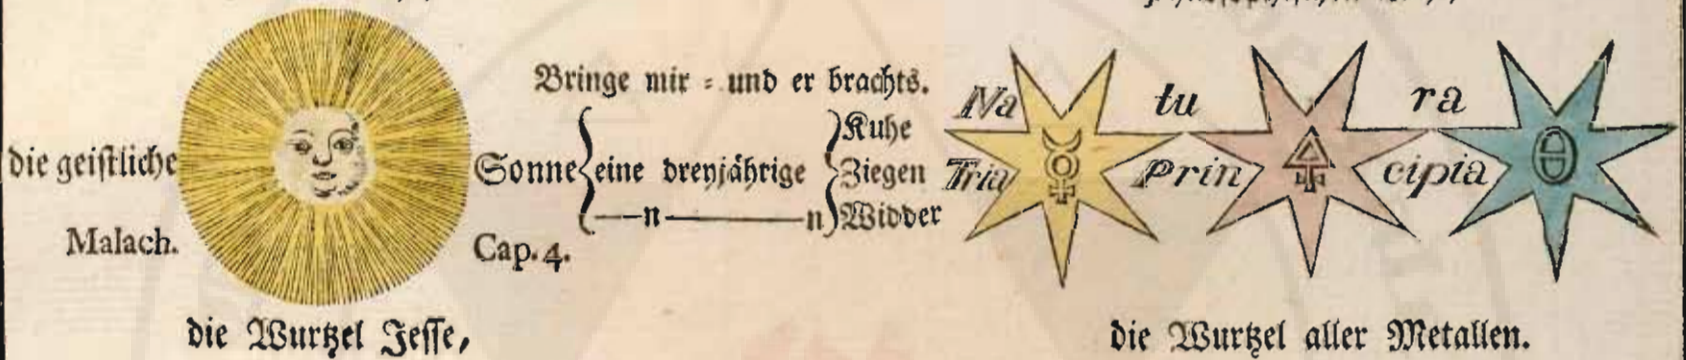 Bringe mir = und er brachts.
die geistliche Sonne eine dreyjährige Kuhe
Ziegen
—n— n Widder
Malach. Cap. 4.
die Wurtzel Jesse,
Na tu ra
Tria Prin cipia
die Wurtzel aller Metallen.